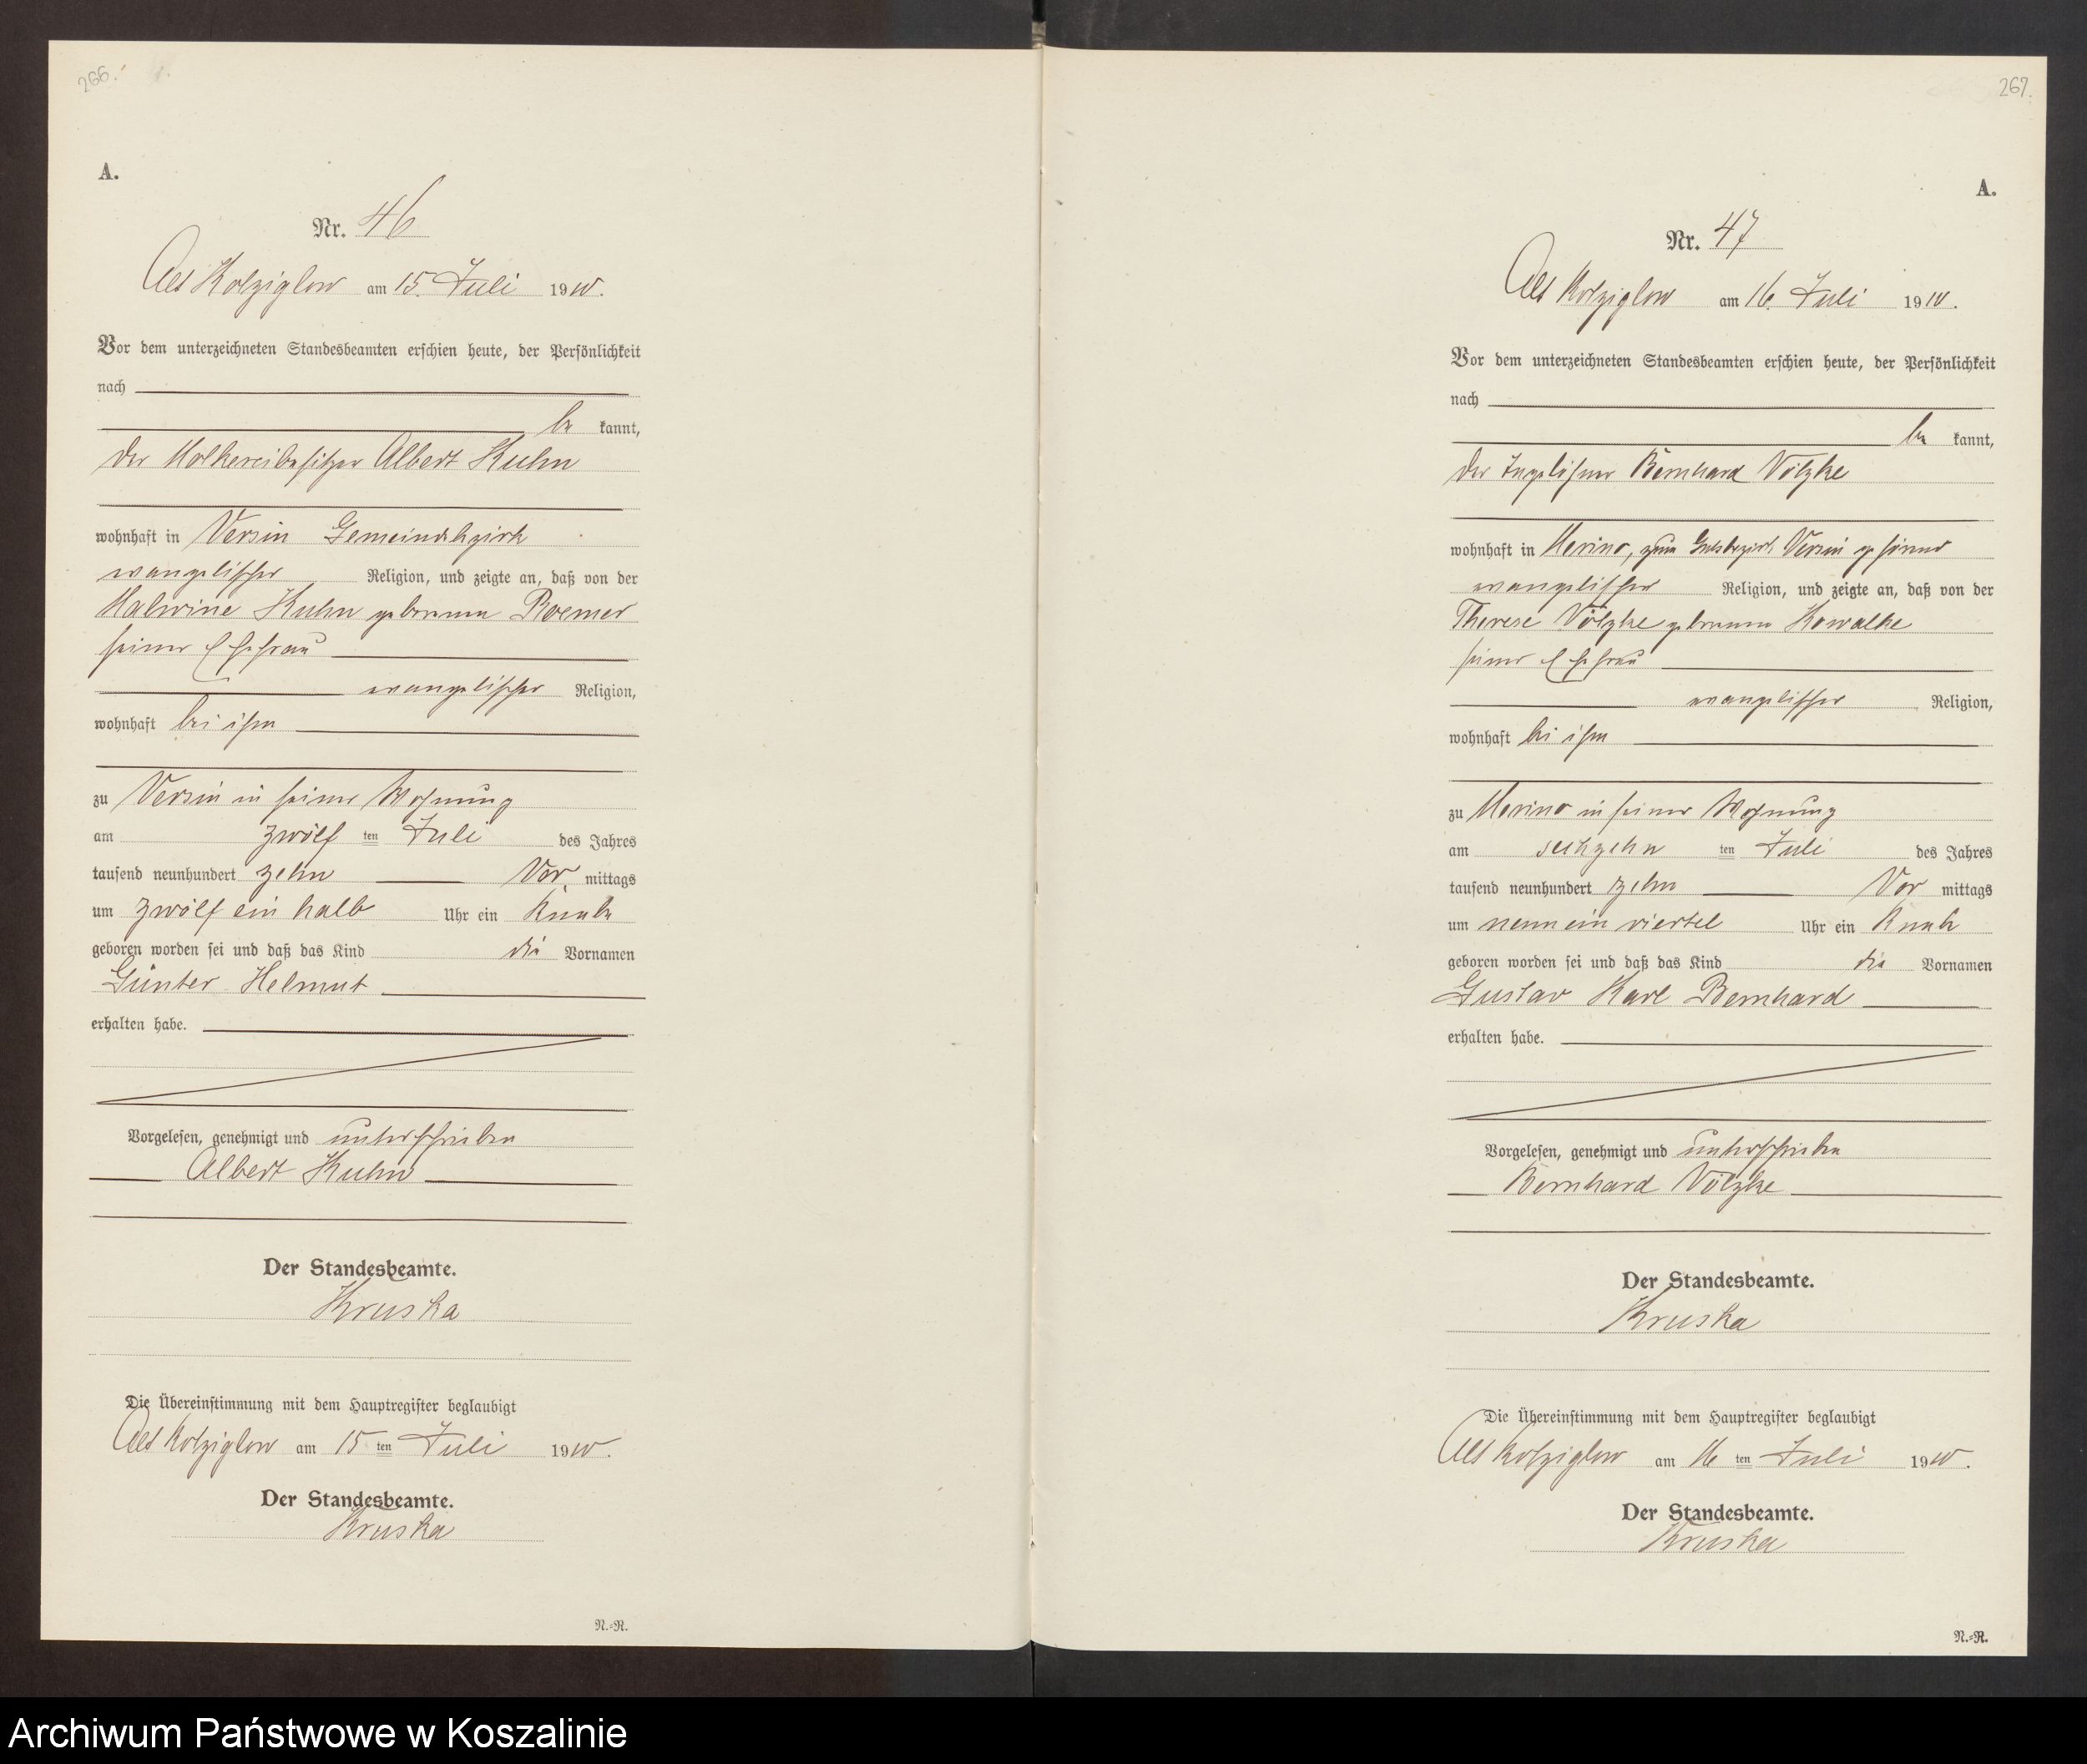 266.
A.
Nr. 46
Alt Kolziglow am 15. Juli 1910.
Vor dem unterzeichneten Standesbeamten erschien heute, der Persönlichkeit
nach
be kannt,
der Molkereibesitzer Albert Kuhn
wohnhaft in Versin Gemeindebezirk
evangelischer Religion, und zeigte an, daß von der
Malwine Kuhn geborenen Roemer
seiner Ehefrau
evangelischer Religion,
wohnhaft bei ihm
zu Versin in seiner Wohnung
am zwölf ten Juli des Jahres
tausend neunhundert zehn Vor mittags
um zwölf ein halb Uhr ein Knabe
geboren worden sei und daß das Kind die Vornamen
Günter Helmut
erhalten habe.
Vorgelesen, genehmigt und unterschrieben
Albert Kuhn
Der Standesbeamte.
Kruska
Die Übereinstimmung mit dem Hauptregister beglaubigt
Alt Kolziglow am 15 ten Juli 1910.
Der Standesbeamte.
Kruska
N.=R.
267.
A.
Nr. 47
Alt Kolziglow am 16. Juli 1910.
Vor dem unterzeichneten Standesbeamten erschien heute, der Persönlichkeit
nach
be kannt,
der Tagelöhner Bernhard Völzke
wohnhaft in Merino, zum Gutsbezirk Versin gehörend
evangelischer Religion, und zeigte an, daß von der
Therese Völzke geborenen Kowalke
seiner Ehefrau
evangelischer Religion,
wohnhaft bei ihm
zu Merino in seiner Wohnung
am sechzehn ten Juli des Jahres
tausend neunhundert zehn Vor mittags
um neun ein viertel Uhr ein Knabe
geboren worden sei und daß das Kind die Vornamen
Gustav Karl Bernhard
erhalten habe.
Vorgelesen, genehmigt und unterschrieben
Bernhard Völzke
Der Standesbeamte.
Kruska
Die Übereinstimmung mit dem Hauptregister beglaubigt
Alt Kolziglow am 16 ten Juli 1910.
Der Standesbeamte.
Kruska
N.=R.
Archiwum Państwowe w Koszalinie